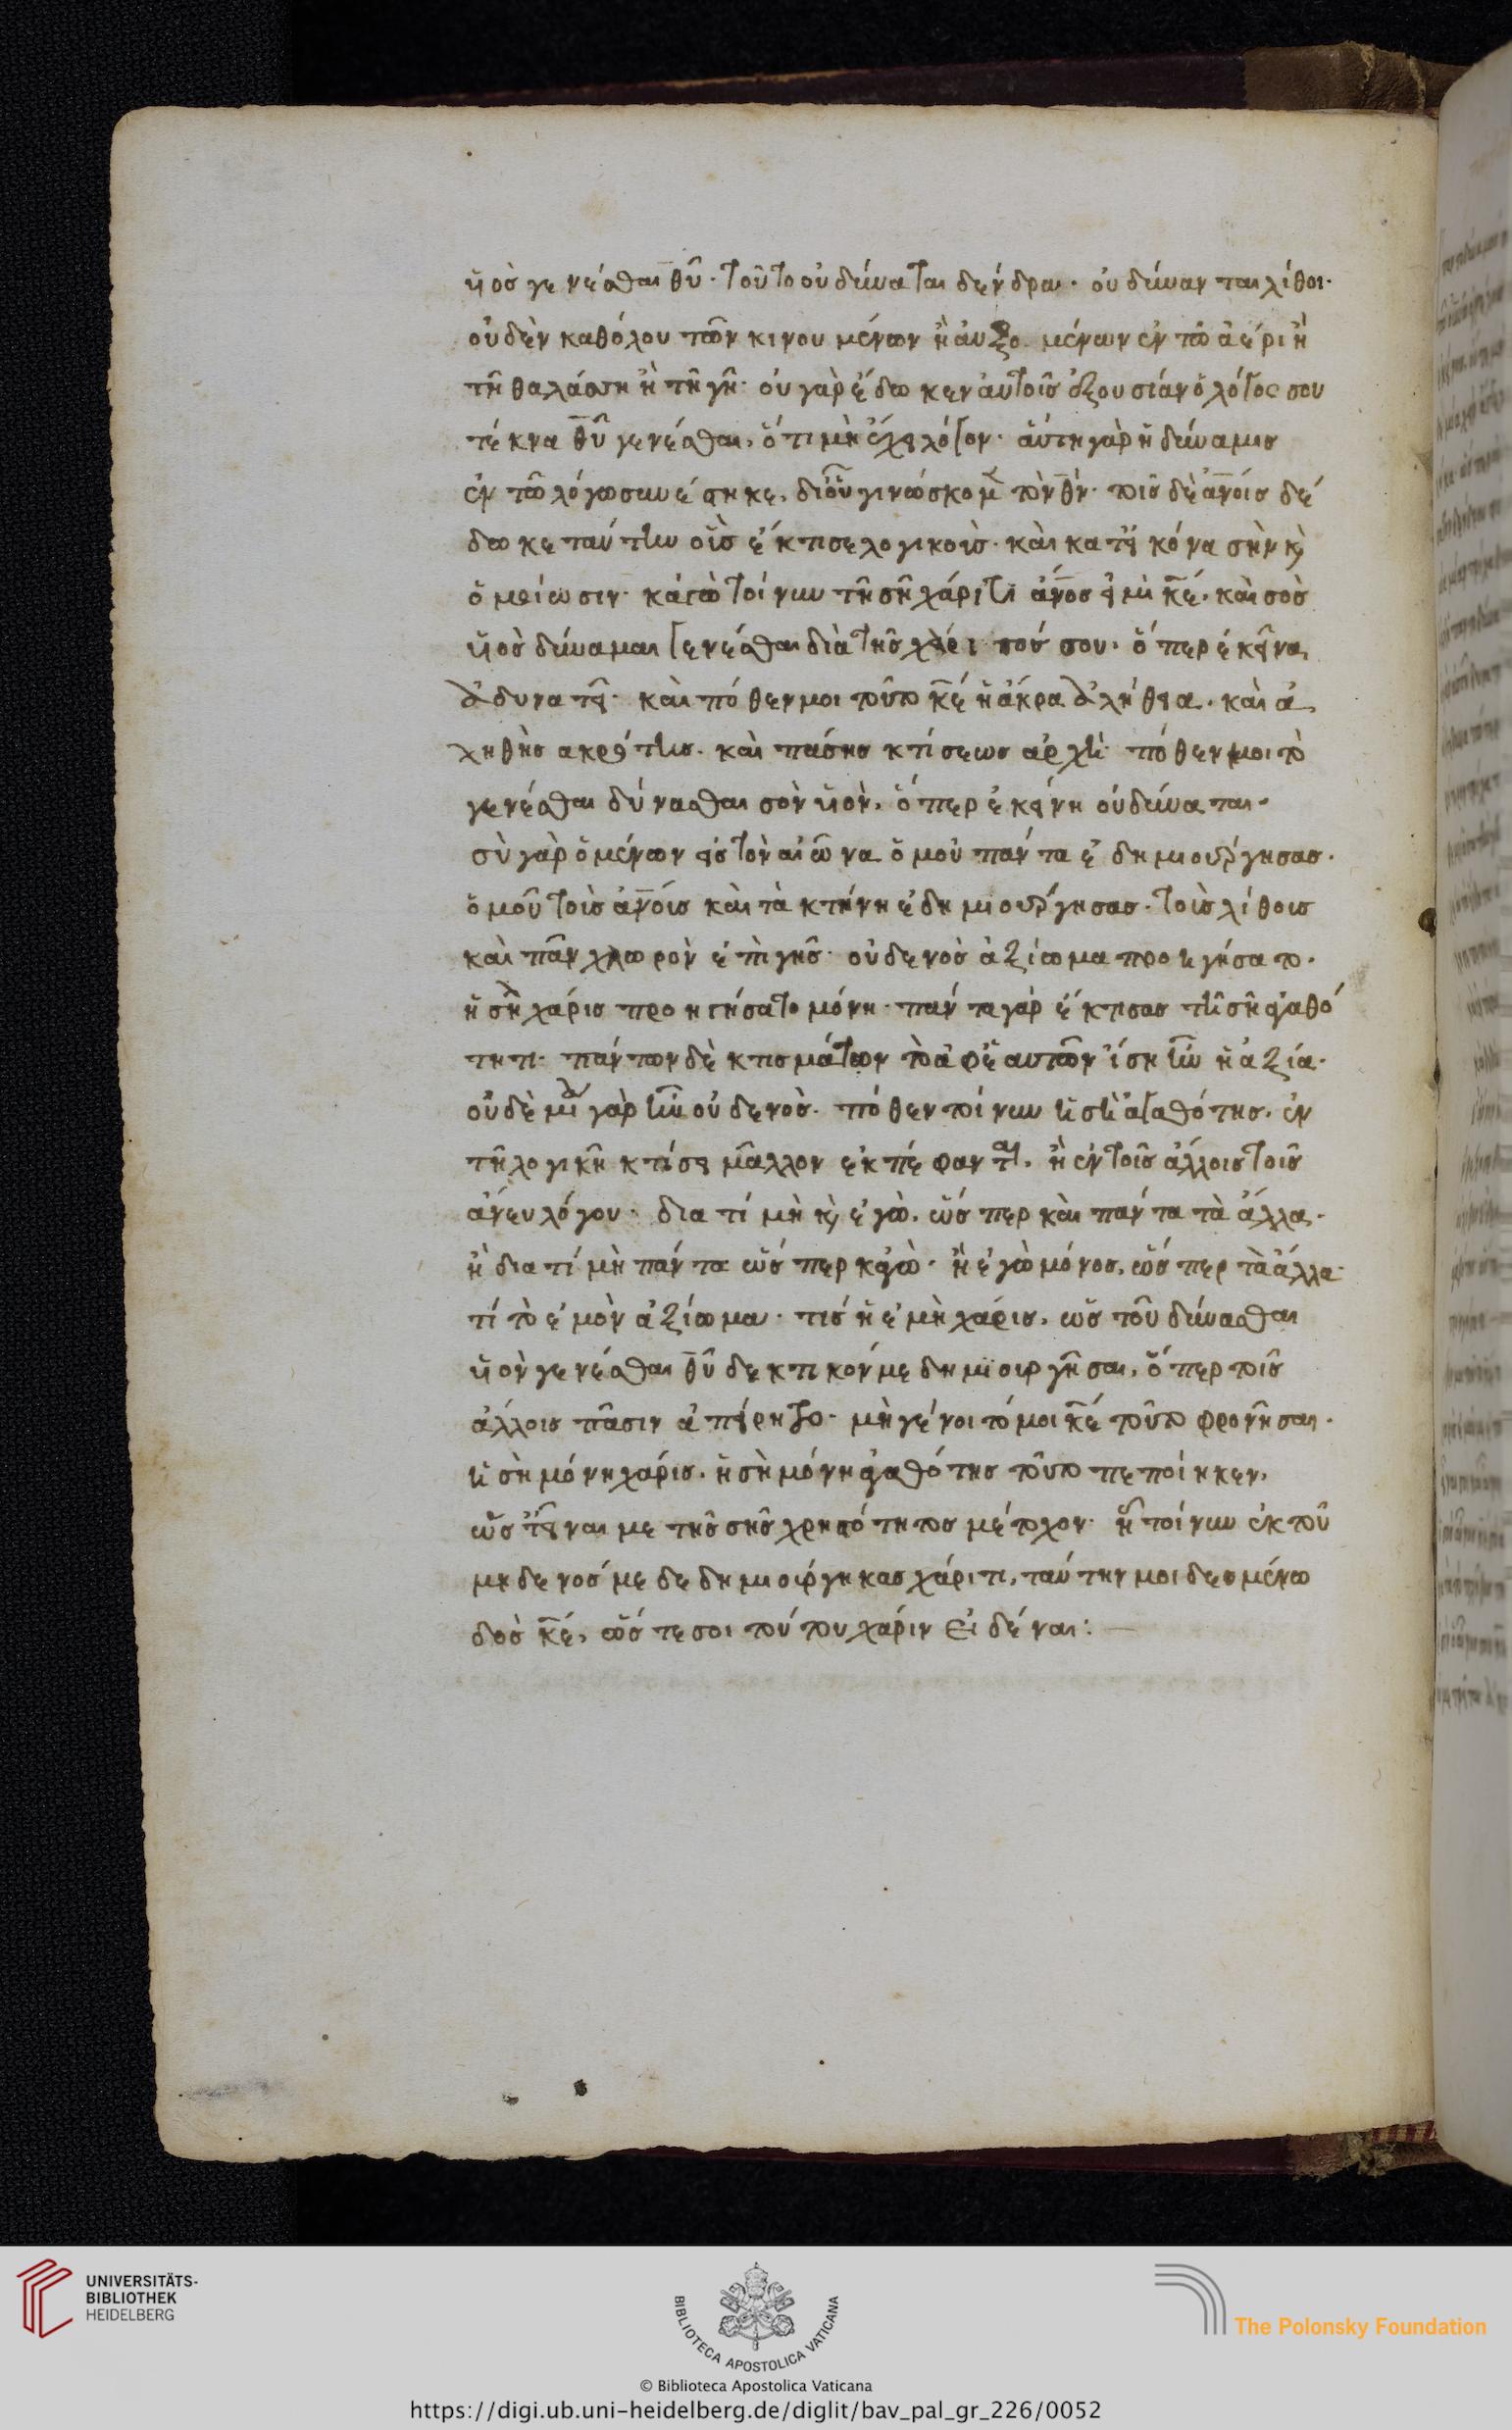 υἱὸσ γενέσθαι θῦ· τοῦτο οὐ δύναται δένδρα· οὐ δύνανται λίθοι·
οὐδὲν καθόλου τῶν κινουμένων ἢ αὐξομένων ἐν τῶ ἀέρι ἢ
τῆ θαλάσση ἢ τῆ γῆ· οὐ γὰρ ἔδωκεν αὐτοῖσ ἐξουσίαν ὁ λόγος σου
τέκνα θῦ γενέσθαι, ὅτι μὴ ἔχει λόγον· αὕτη γὰρ ἡ δύναμισ
ἐν τῶ λόγω συνέστηκε, δι' οὗ γινώσκομ τὸν θν· τοῖσ δὲ ἀνοισ δέ
δωκε ταύτην οἷσ ἔκτισε λογικοῖσ· καὶ κατ' εἰκόνα σὴν κ
ὁμοίωσιν· κἀγὼ τοίνυν τῆ σῆ χάριτι ἄνοσ εἰμὶ κέ, καὶ σὸσ
υἱὸσ δύναμαι γενέσθαι διὰ τῆσ χάριτόσ σου, ὅπερ ἐκεῖνα
ἀδυνατεῖ· καὶ πόθεν μοι τοῦτο κέ ἡ ἄκρα ἀλήθεια· καὶ ἀ
ληθὴσ ακρότησ· καὶ πάσησ κτίσεωσ ἀρχὴ· πόθεν μοι τὸ
γενέσθαι δύνασθαι σὸν υἱὸν, ὅπερ ἐκείνη οὐ δύναται·
σὺ γὰρ ὁ μένων εἰσ τὸν αἰῶνα ὁμοῦ πάντα ἐδημιούργησασ·
ὁμοῦ τοῖσ ἀνοισ καὶ τὰ κτήνη ἐδημιούργησασ· τοῖσ λίθοισ
καὶ πᾶν χλωρὸν ἐπὶ γῆσ· οὐδενὸσ ἀξίωμα προηγήσατο·
ἡ σὴ χάρισ προηγήσατο μόνη· πάντα γὰρ ἔκτισασ τῆ σῆ ἀγαθό
τητι· πάντων δὲ κτισμάτων τὸ ἀφ' ἑαυτῶν ἴση ἦν ἡ ἀξία·
οὐδὲ μία γὰρ ἦν οὐδενὸσ· πόθεν τοίνυν ἡ σὴ ἀγαθότησ, ἐν
τῆ λογικῆ κτίσει μᾶλλον ἐκπέφανται, ἢ ἐν τοῖσ ἄλλοισ τοῖσ
ἄνευ λόγου· δια τί μὴ κ ἐγὼ, ὥσπερ καὶ πάντα τὰ ἄλλα·
ἢ δια τί μὴ πάντα ὥσπερ κἀγὼ· ἢ ἐγὼ μόνοσ, ὥσπερ τὰ ἄλλα·
τί τὸ ἐμὸν ἀξίωμα· τίσ ἡ ἐμὴ χάρισ, ὡσ τοῦ δύνασθαι
υἱὸν γενέσθαι θῦ δεκτικόν με δημιουργῆσαι, ὅπερ τοῖσ
ἄλλοισ πᾶσιν ἀπείρητο· μὴ γένοιτό μοι κέ τοῦτο φρονῆσαι·
ἡ σὴ μόνη χάρισ, ἡ σὴ μόνη ἀγαθότησ τοῦτο πεποίηκεν,
ὡσ εἶναι με τῆσ σῆσ χρηστότητοσ μέτοχον· ἧ τοίνυν ἐκ τοῦ
μηδενόσ με δεδημιούργηκασ χάριτι, ταύτην μοι δεομένω
δὸσ κέ, ὥστε σοι τούτου χάριν εἰδέναι:
UNIVERSITÄTS-
BIBLIOTHEK
HEIDELBERG
BIBLIOTECA APOSTOLICA VATICANA
The Polonsky Foundation
© Biblioteca Apostolica Vaticana
https://digi.ub.uni-heidelberg.de/diglit/bav_pal_gr_226/0052